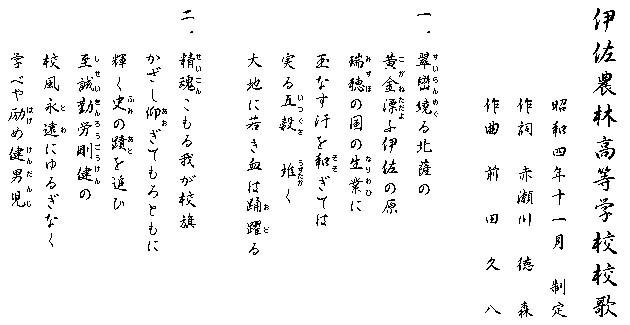 伊佐農林高等学校校歌
昭和四年十一月 制定
作詞 赤瀬川 徳森
作曲 前田久八
一、翠巒境る北薩の
黄金漂よ伊佐の原
瑞穂の国の生業に
玉なす汗を和ぎては
実る五穀 堆く
大地に若き血は踊躍る
二、精魂こもる我が校旗
かざし仰ぎてもろともに
輝く史の蹟を追ひ
至誠勤労剛健の
校風永遠にゆるぎなく
学べや励め健男児